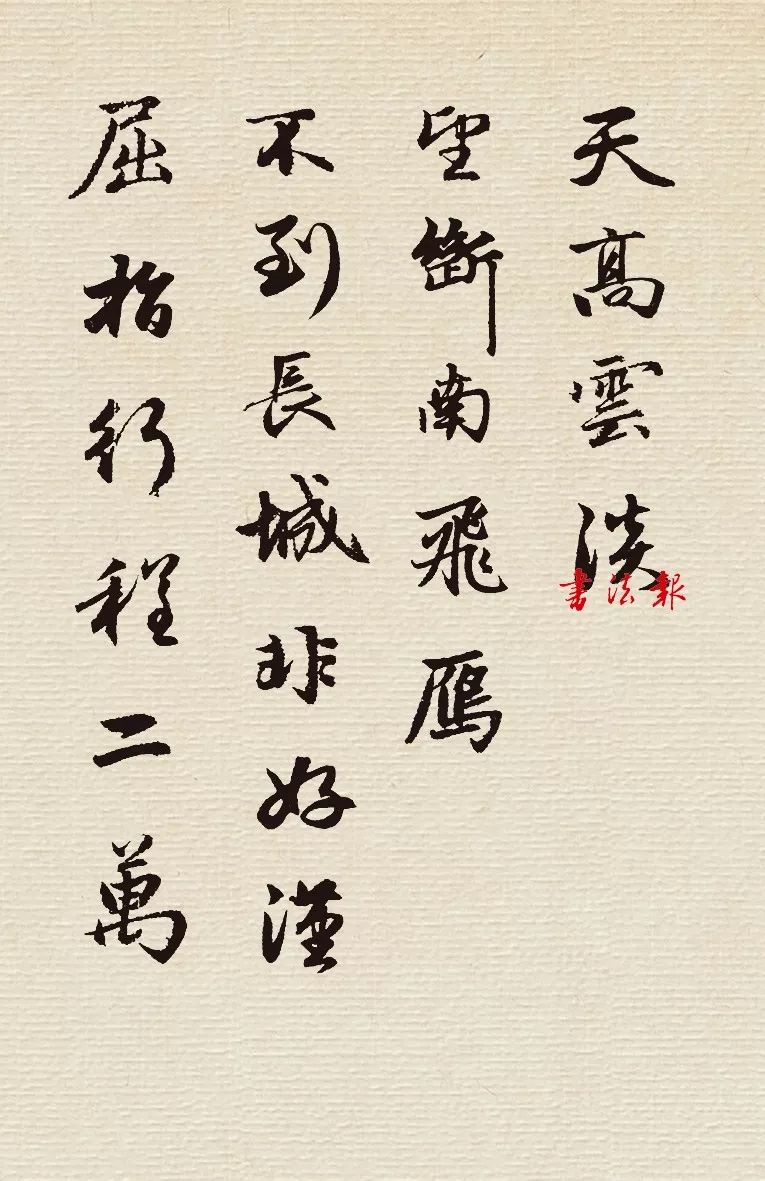 天高雲淡
望斷南飛鴈
不到長城非好漢
屈指行程二萬
書法報